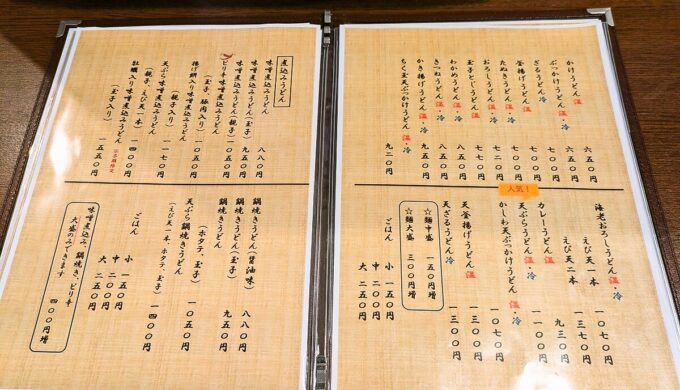 かけうどん 温 五五〇円
ぶっかけうどん 温・冷 六五〇円
ざるうどん 冷 六五〇円
釜揚げうどん 温 七七〇円
たぬきうどん 温・冷 七二〇円
おろしうどん 冷 七七〇円
玉子とじうどん 温 七七〇円
わかめうどん 温・冷 八五〇円
きつねうどん 温・冷 八五〇円
かき揚げうどん 温・冷 九五〇円
ちく玉天ぶっかけうどん 温・冷 九二〇円
海老おろしうどん 冷
えび天一本 一〇七〇円
えび天二本 一三七〇円
カレーうどん 温 九三〇円
天ぷらうどん 温・冷 一〇七〇円
人気!
かしわ天ぶっかけうどん 温・冷 一一〇〇円
天釜揚げうどん 温 一三〇〇円
天ざるうどん 冷 一三〇〇円
☆麺中盛 一五〇円増
☆麺大盛 三〇〇円増
ごはん 小 一五〇円
中 二〇〇円
大 二五〇円
煮込みうどん
味噌煮込みうどん 八八〇円
味噌煮込みうどん(玉子) 九五〇円
ピリ辛味噌煮込みうどん(親子)
(玉子、豚肉入り) 一〇五〇円
揚げ餅入り味噌煮込みうどん
(親子入り) 一一七〇円
天ぷら味噌煮込みうどん
(親子、えび天一本) 一四〇〇円
牡蠣入り味噌煮込みうどん
(玉子入り) 一五五〇円
鍋焼きうどん(醤油味) 八八〇円
鍋焼きうどん(玉子) 九五〇円
鍋焼きうどん
(ホタテ、玉子) 一〇五〇円
天ぷら鍋焼きうどん
(えび天一本、ホタテ、玉子) 一四〇〇円
ごはん 小 一五〇円
中 二〇〇円
大 二五〇円
味噌煮込み、鍋焼き、ピリ辛
大盛のみできます 四〇〇円増